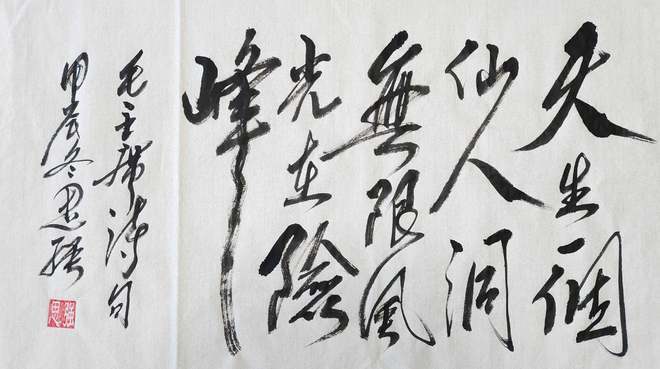 天生一個
仙人洞
無限風
光在險
峰
毛主席詩句
甲辰冬思强
思强